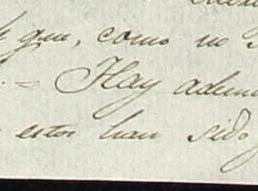 que, como no
= Hay adem
estos han sido